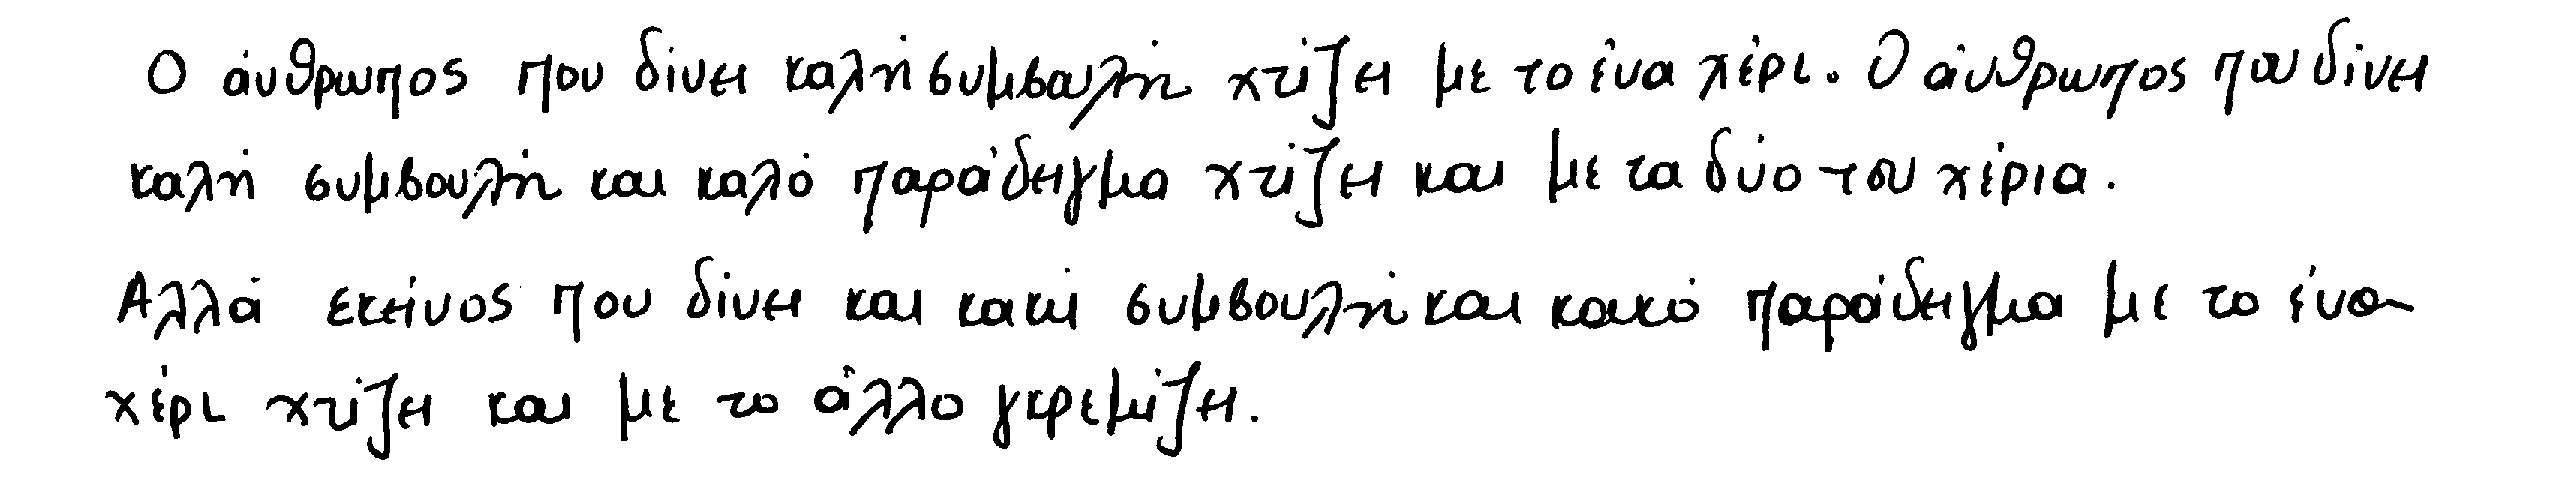 Ο άνθρωπος που δίνει καλή συμβουλή χτίζει με το ένα χέρι. Ο άνθρωπος που δίνει
καλή συμβουλή και καλό παράδειγμα χτίζει και με τα δύο του χέρια.
Αλλά εκείνος που δίνει και κακή συμβουλή και κακό παράδειγμα με το ένα
χέρι χτίζει και με το άλλο γκρεμίζει.